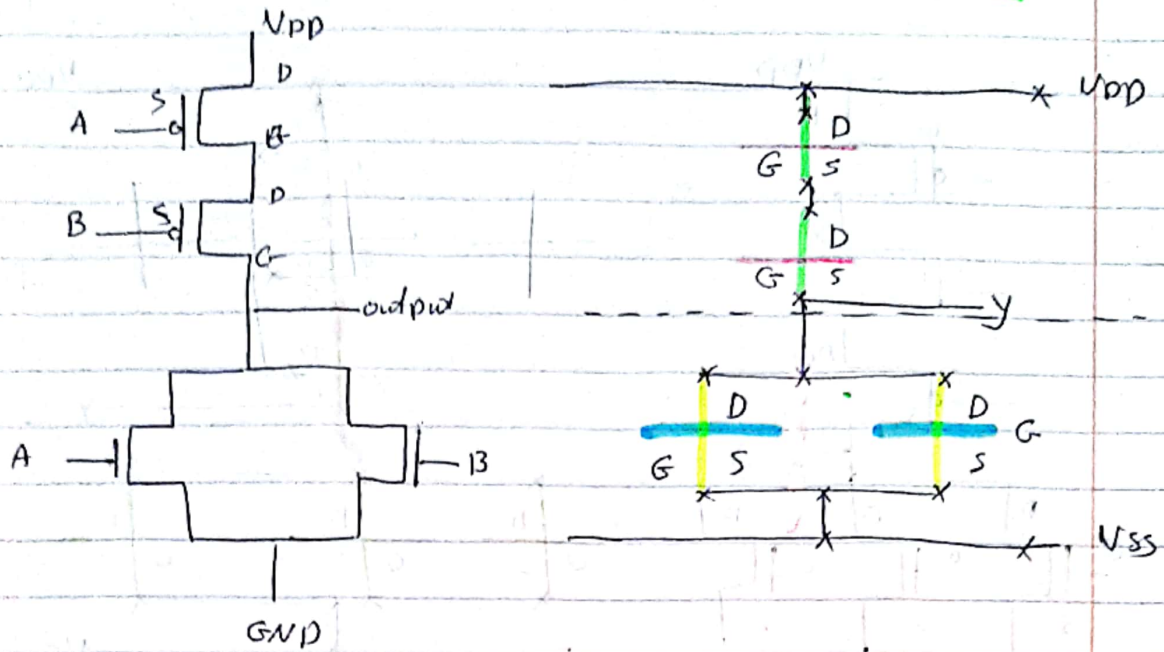 VDD
D
S
A
G
D
S
B
G
output
A
B
GND
VDD
D
G S
D
G S
y
D
D
G
G S
S
VSS